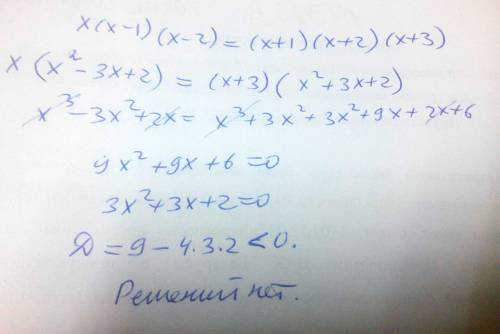 x(x-1)(x-2) = (x+1)(x+2)(x+3)
x(x²-3x+2) = (x+3)(x²+3x+2)
x³-3x²+2x = x³+3x²+3x²+9x+2x+6
9x²+9x+6=0
3x²+3x+2=0
Д = 9-4.3.2<0.
Решений нет.